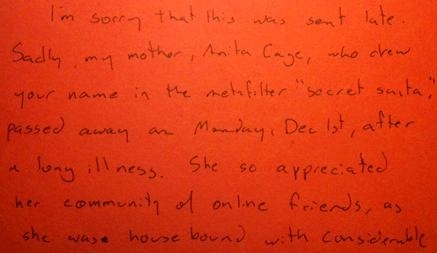 I'm sorry that this was sent late.
Sadly, my mother, Anita Cage, who drew
your name in the metafilter "secret santa,"
passed away on Monday, Dec 1st, after
a long illness. She so appreciated
her community of online friends, as
she was housebound with considerable